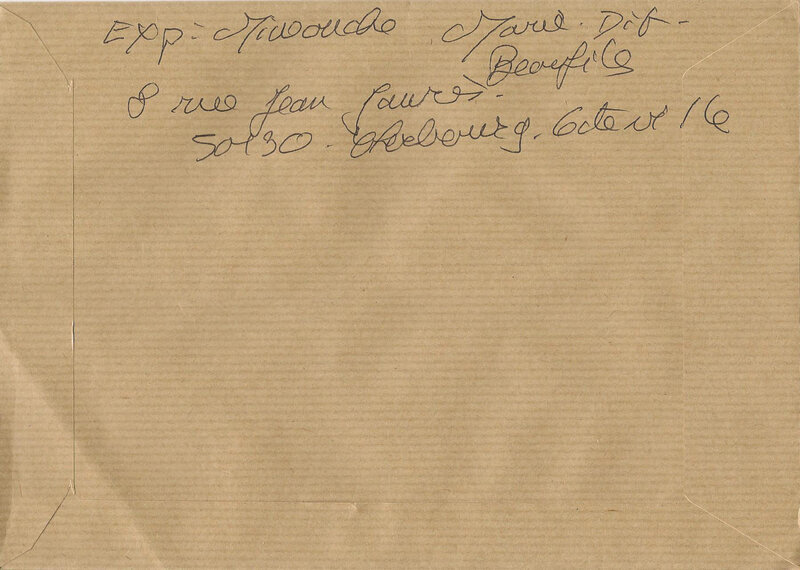 Exp: Minouche Marie. Dit-
Beaufils
8 rue Jean Jaurès.
50130. Cherbourg. Octeville